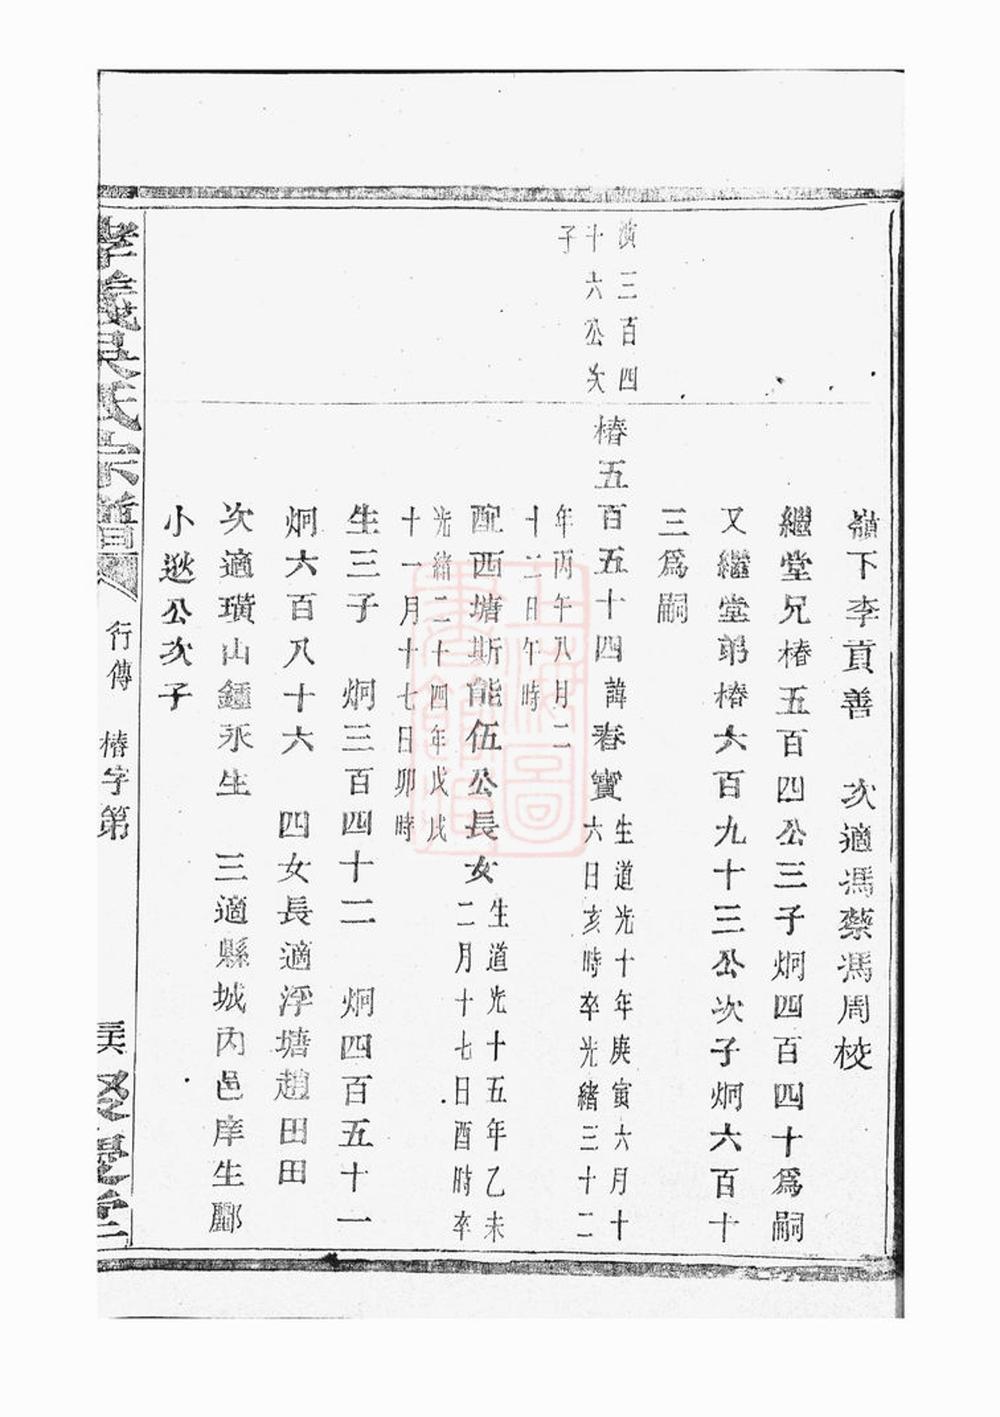 嶺下李貢善　次適馮蔡馮周校
繼堂兄椿五百四公三子炯四百四十爲嗣
又繼堂弟椿六百九十三公次子炯六百十
三爲嗣
演三百四
十六公次
子
椿五百五十四諱春寶
生道光十年庚寅六月十
六日亥時卒光緒三十二
年丙午八月二
十二日午時
配西塘斯能伍公長女
生道光十五年乙未
二月十七日酉時卒
光緒二十四年戊戌
十一月十七日卯時
生三子　炯三百四十二　炯四百五十一
炯六百八十六　四女長適浮塘趙田田
次適璜山鍾永生　三適縣城內邑庠生酈
小逖公次子
孝義吳氏宗譜
行傳　椿字第